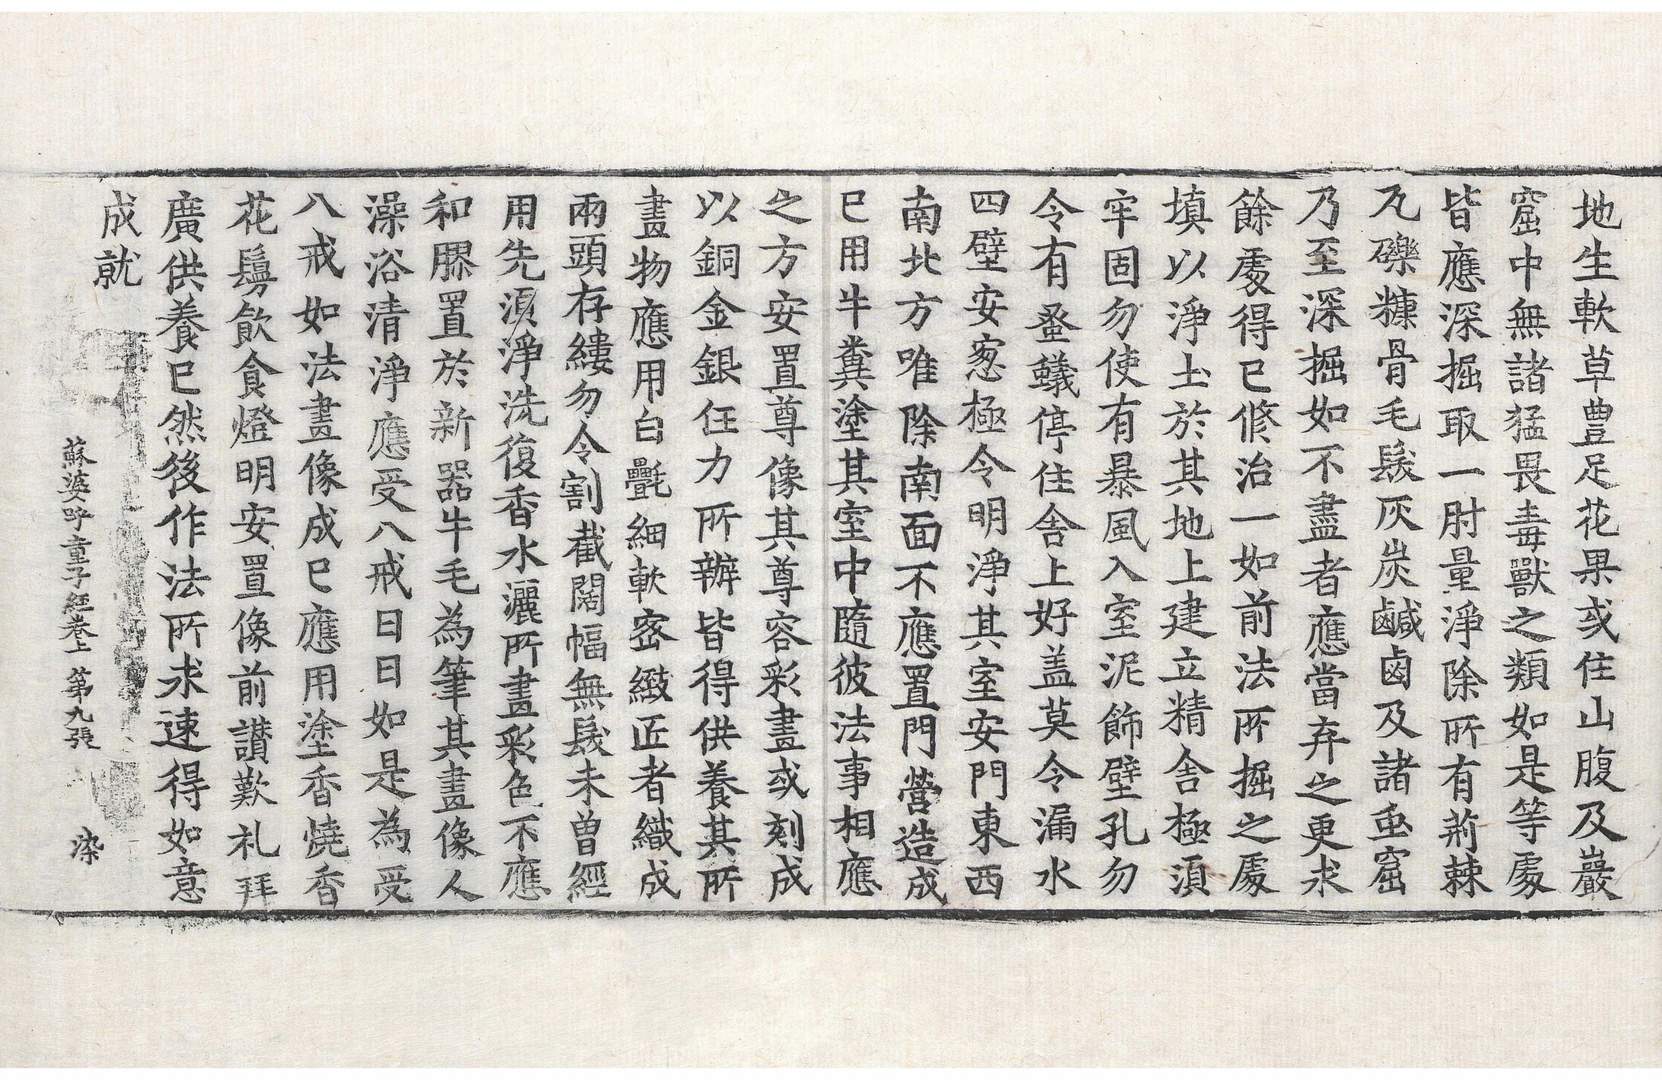 地生軟草豊足花果或住山腹及巖
窟中無諸猛畏毒獸之類如是等處
皆應深掘取一肘量淨除所有荊棘
瓦礫糠骨毛髮灰炭鹹鹵及諸虫窟
乃至深掘如不盡者應當弃之更求
餘處得已修治一如前法所掘之處
填以淨土於其地上建立精舍極須
牢固勿使有暴風入室泥飾壁孔勿
令有蚤蟻停住舍上好盖莫令漏水
四壁安窓極令明淨其室安門東西
南北方唯除南面不應置門營造成
已用牛糞塗其室中隨彼法事相應
之方安置尊像其尊容彩畫或刻成
以銅金銀任力所辦皆得供養其所
畫物應用白㲲細軟密緻匠者織成
兩頭存縷勿令割截闊幅無髮未曾經
用先須淨洗復香水灑所畫彩色不應
和膠置於新器牛毛為筆其畫像人
澡浴清淨應受八戒日日如是為受
八戒如法畫像成已應用塗香燒香
花鬘飲食燈明安置像前讃歎礼拜
廣供養已然後作法所求速得如意
成就
蘇婆呼童子經卷上 第九張 染